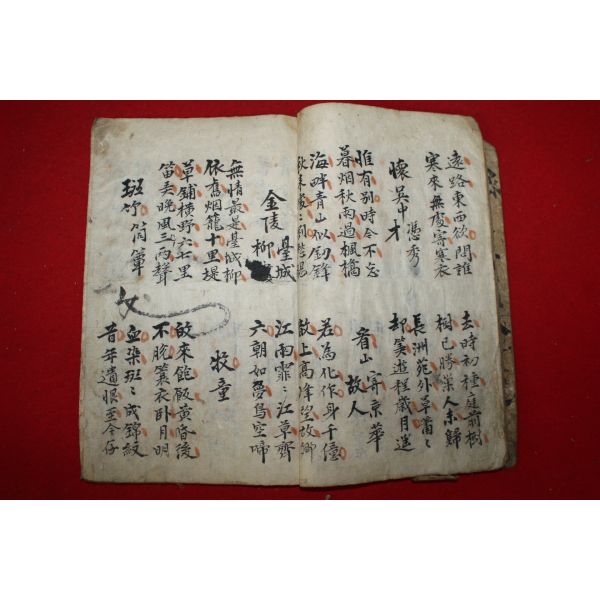 遠路東西欲問誰
寒來無處寄寒衣
去時初種庭前樹
樹已勝巢人未歸
懷吳中才 馮秀
長洲苑外草蕭〻
却笑遊程歲月遙
惟有別時今不忘
暮烟秋雨過楓橋
看山寄京華
故人
海畔青山似釰鋒
秋來處〻割愁腸
若為化作身千億
散上高峰望故鄉
金陵 臺城
柳
江雨霏〻江草齊
六朝如夢鳥空啼
無情最是臺城柳
依舊烟籠十里堤
牧童
草鋪橫野六七里
笛弄晚風三兩聲
故來飽飯黃昏後
不脫簑衣卧月明
班竹筒簟
血染班〻成錦紋
昔年遺恨至今存